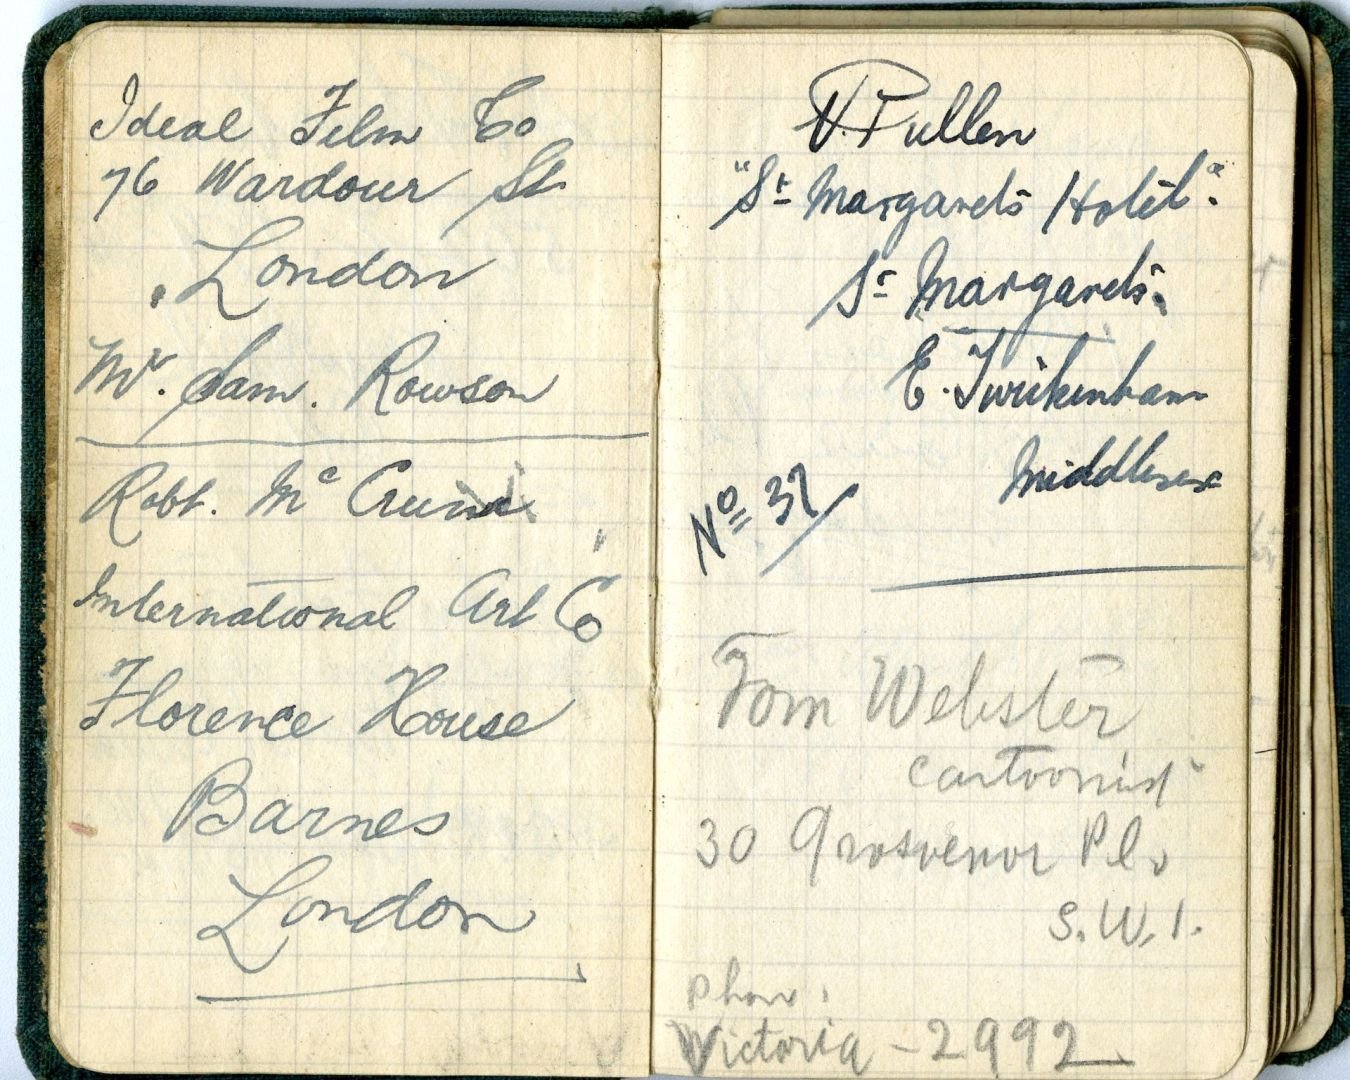 Ideal Film Co
76 Wardour St
London
Mr. Sam. Rowson
Robt. Mc
International Art Co
Florence House
Barnes
London
V. Pullen
"St Margarets Hotel".
St Margarets.
E. Twickenham
Middlesex
No 37/
Tom Webster
cartoonist
30 Grosvenor Pl.
S.W.1.
Phone:
Victoria - 2992